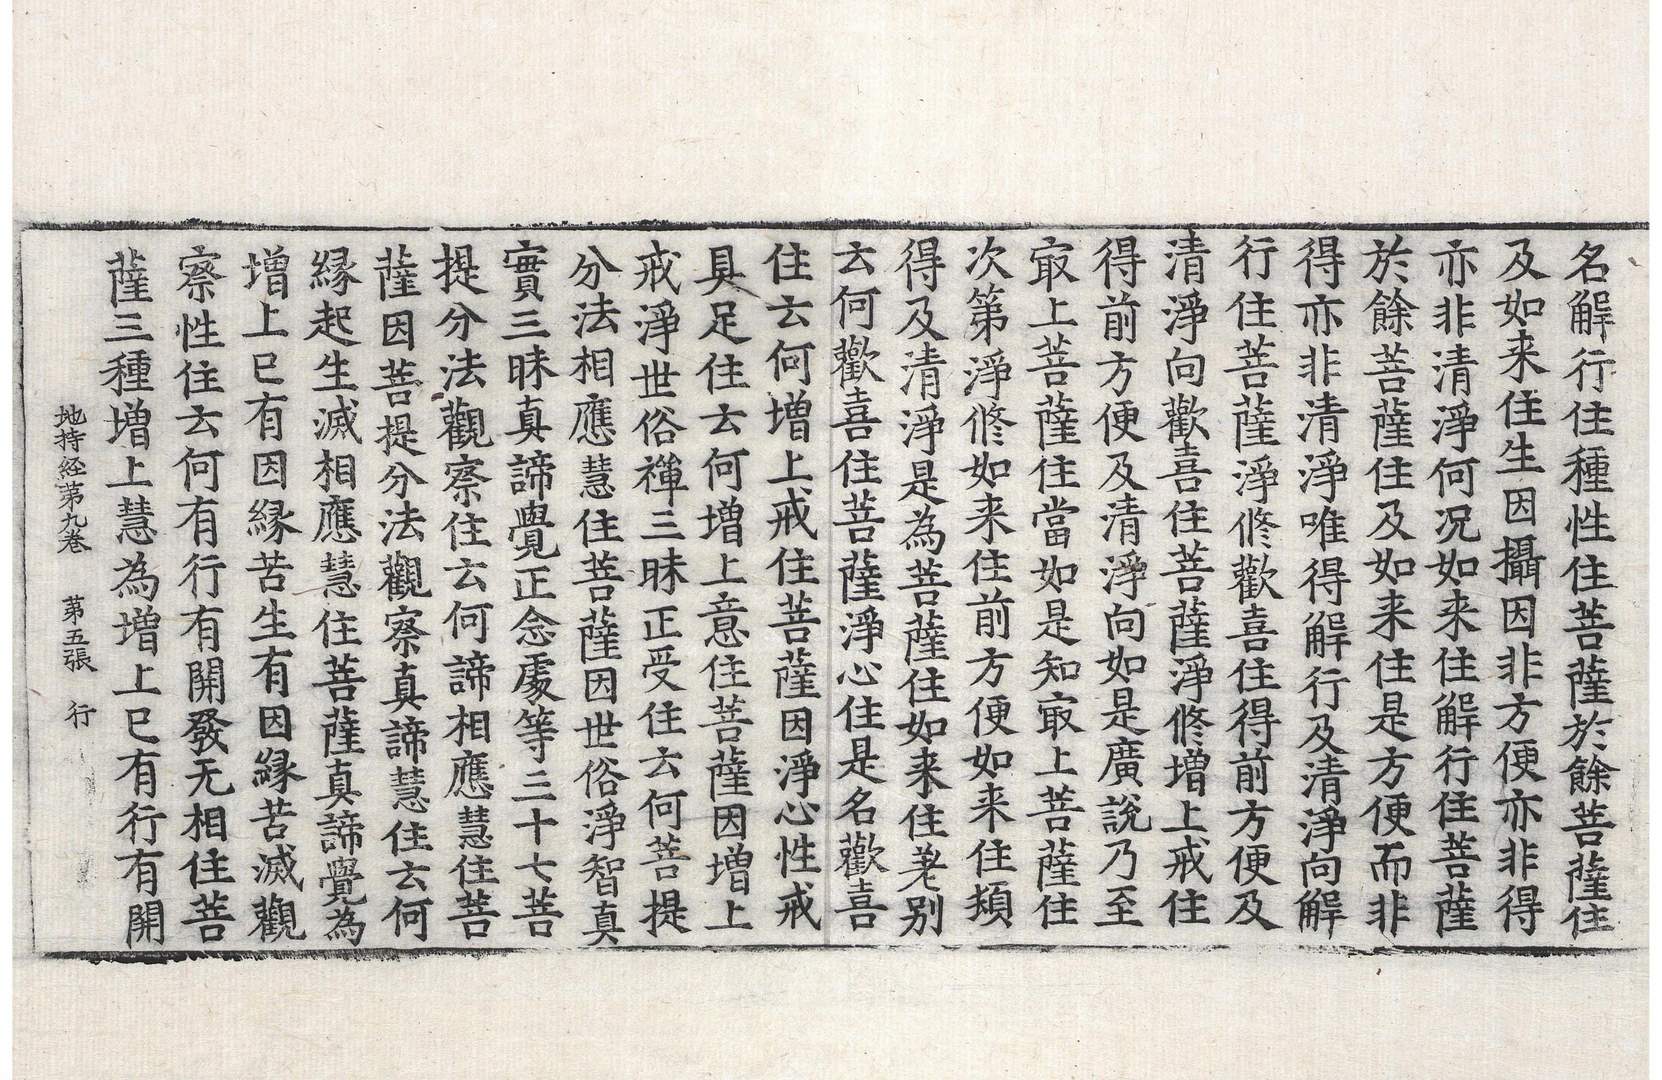 名解行住種性住菩薩於餘菩薩住
及如来住生因攝因非方便亦非得
亦非清淨何况如来住解行住菩薩
於餘菩薩住及如来住是方便而非
得亦非清淨唯得解行及清淨向解
行住菩薩淨修歡喜住得前方便及
清淨向歡喜住菩薩淨修增上戒住
得前方便及清淨向如是廣說乃至
㝡上菩薩住當如是知㝡上菩薩住
次第淨修如来住前方便如来住頻
得及清淨是為菩薩住如来住差别
云何歡喜住菩薩淨心住是名歡喜
住云何增上戒住菩薩因淨心性戒
具足住云何增上意住菩薩因增上
戒淨世俗禪三昧正受住云何菩提
分法相應慧住菩薩因世俗淨智真
實三昧真諦覺正念處等三十七菩
提分法觀察住云何諦相應慧住菩
薩因菩提分法觀察真諦慧住云何
緣起生滅相應慧住菩薩真諦覺為
增上已有因緣苦生有因緣苦滅觀
察性住云何有行有開發无相住菩
薩三種增上慧為增上已有行有開
地持経第九卷　第五張　行